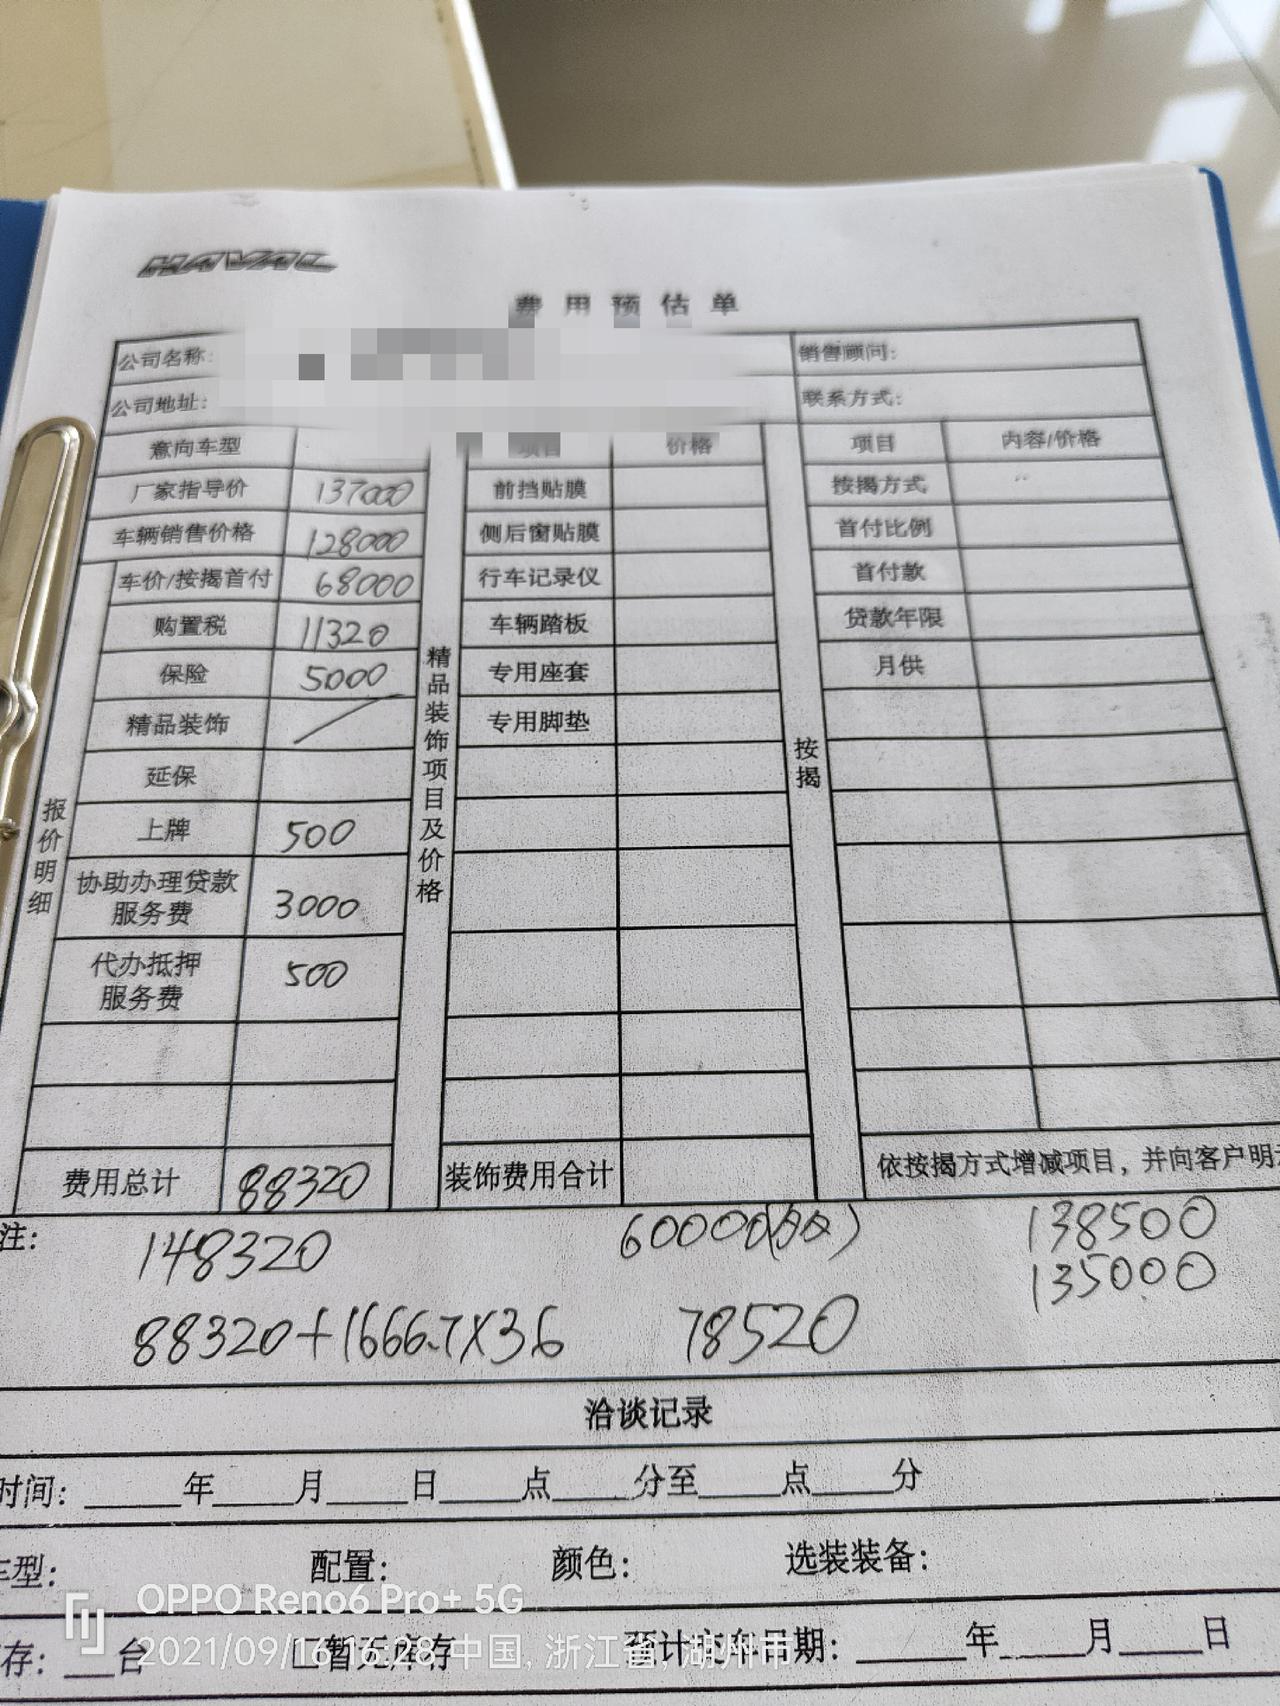 HAVAL
费用预估单
公司名称: 销售顾问:
公司地址: 联系方式:
意向车型 项目 价格 项目 内容/价格
厂家指导价 137000 前挡贴膜 按揭方式
车辆销售价格 128000 侧后窗贴膜 首付比例
车价/按揭首付 68000 行车记录仪 首付款
购置税 11320 车辆踏板 贷款年限
保险 5000 专用座套 月供
精品装饰 / 专用脚垫
延保
上牌 500
协助办理贷款
服务费 3000
代办抵押
服务费 500
报价明细
精品装饰项目及价格
按揭
费用总计 88320 装饰费用合计 依按揭方式增减项目，并向客户明
注: 148320 60000 138500
135000
88320+1666.7×36 78520
洽谈记录
时间:____年____月____日____点____分至____点____分
车型: 配置: 颜色: 选装装备:
OPPO Reno6 Pro+ 5G
存:___台 □暂无库存 预计交车日期:_____年____月____日
2021/09/16 16:28 中国, 浙江省, 湖州市